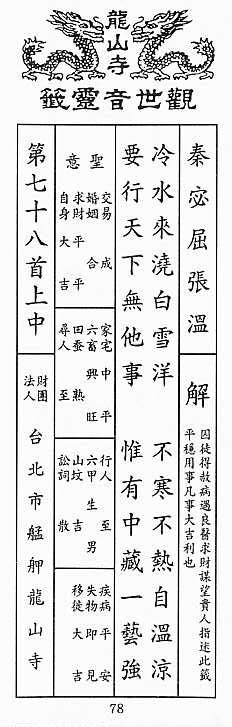 龍山寺
觀世音靈籤
秦宓屈張溫
解
囚徒得赦病遇良醫求財謀望貴人指述此籤
平穩用事凡事大吉利也
冷水來澆白雪洋　不寒不熱自溫涼
要行天下無他事　惟有中藏一藝強
聖意
交易　成
婚姻　合
求財　平平
自身　大吉
家宅　中平
六畜　興旺
田蚕　熟
尋人　至
行人　至
六甲　生男
山坟　吉
訟詞　散
疾病　平安
失物　即見
移徙　大吉
第七十八首上中
財團法人
台北市艋舺龍山寺
78